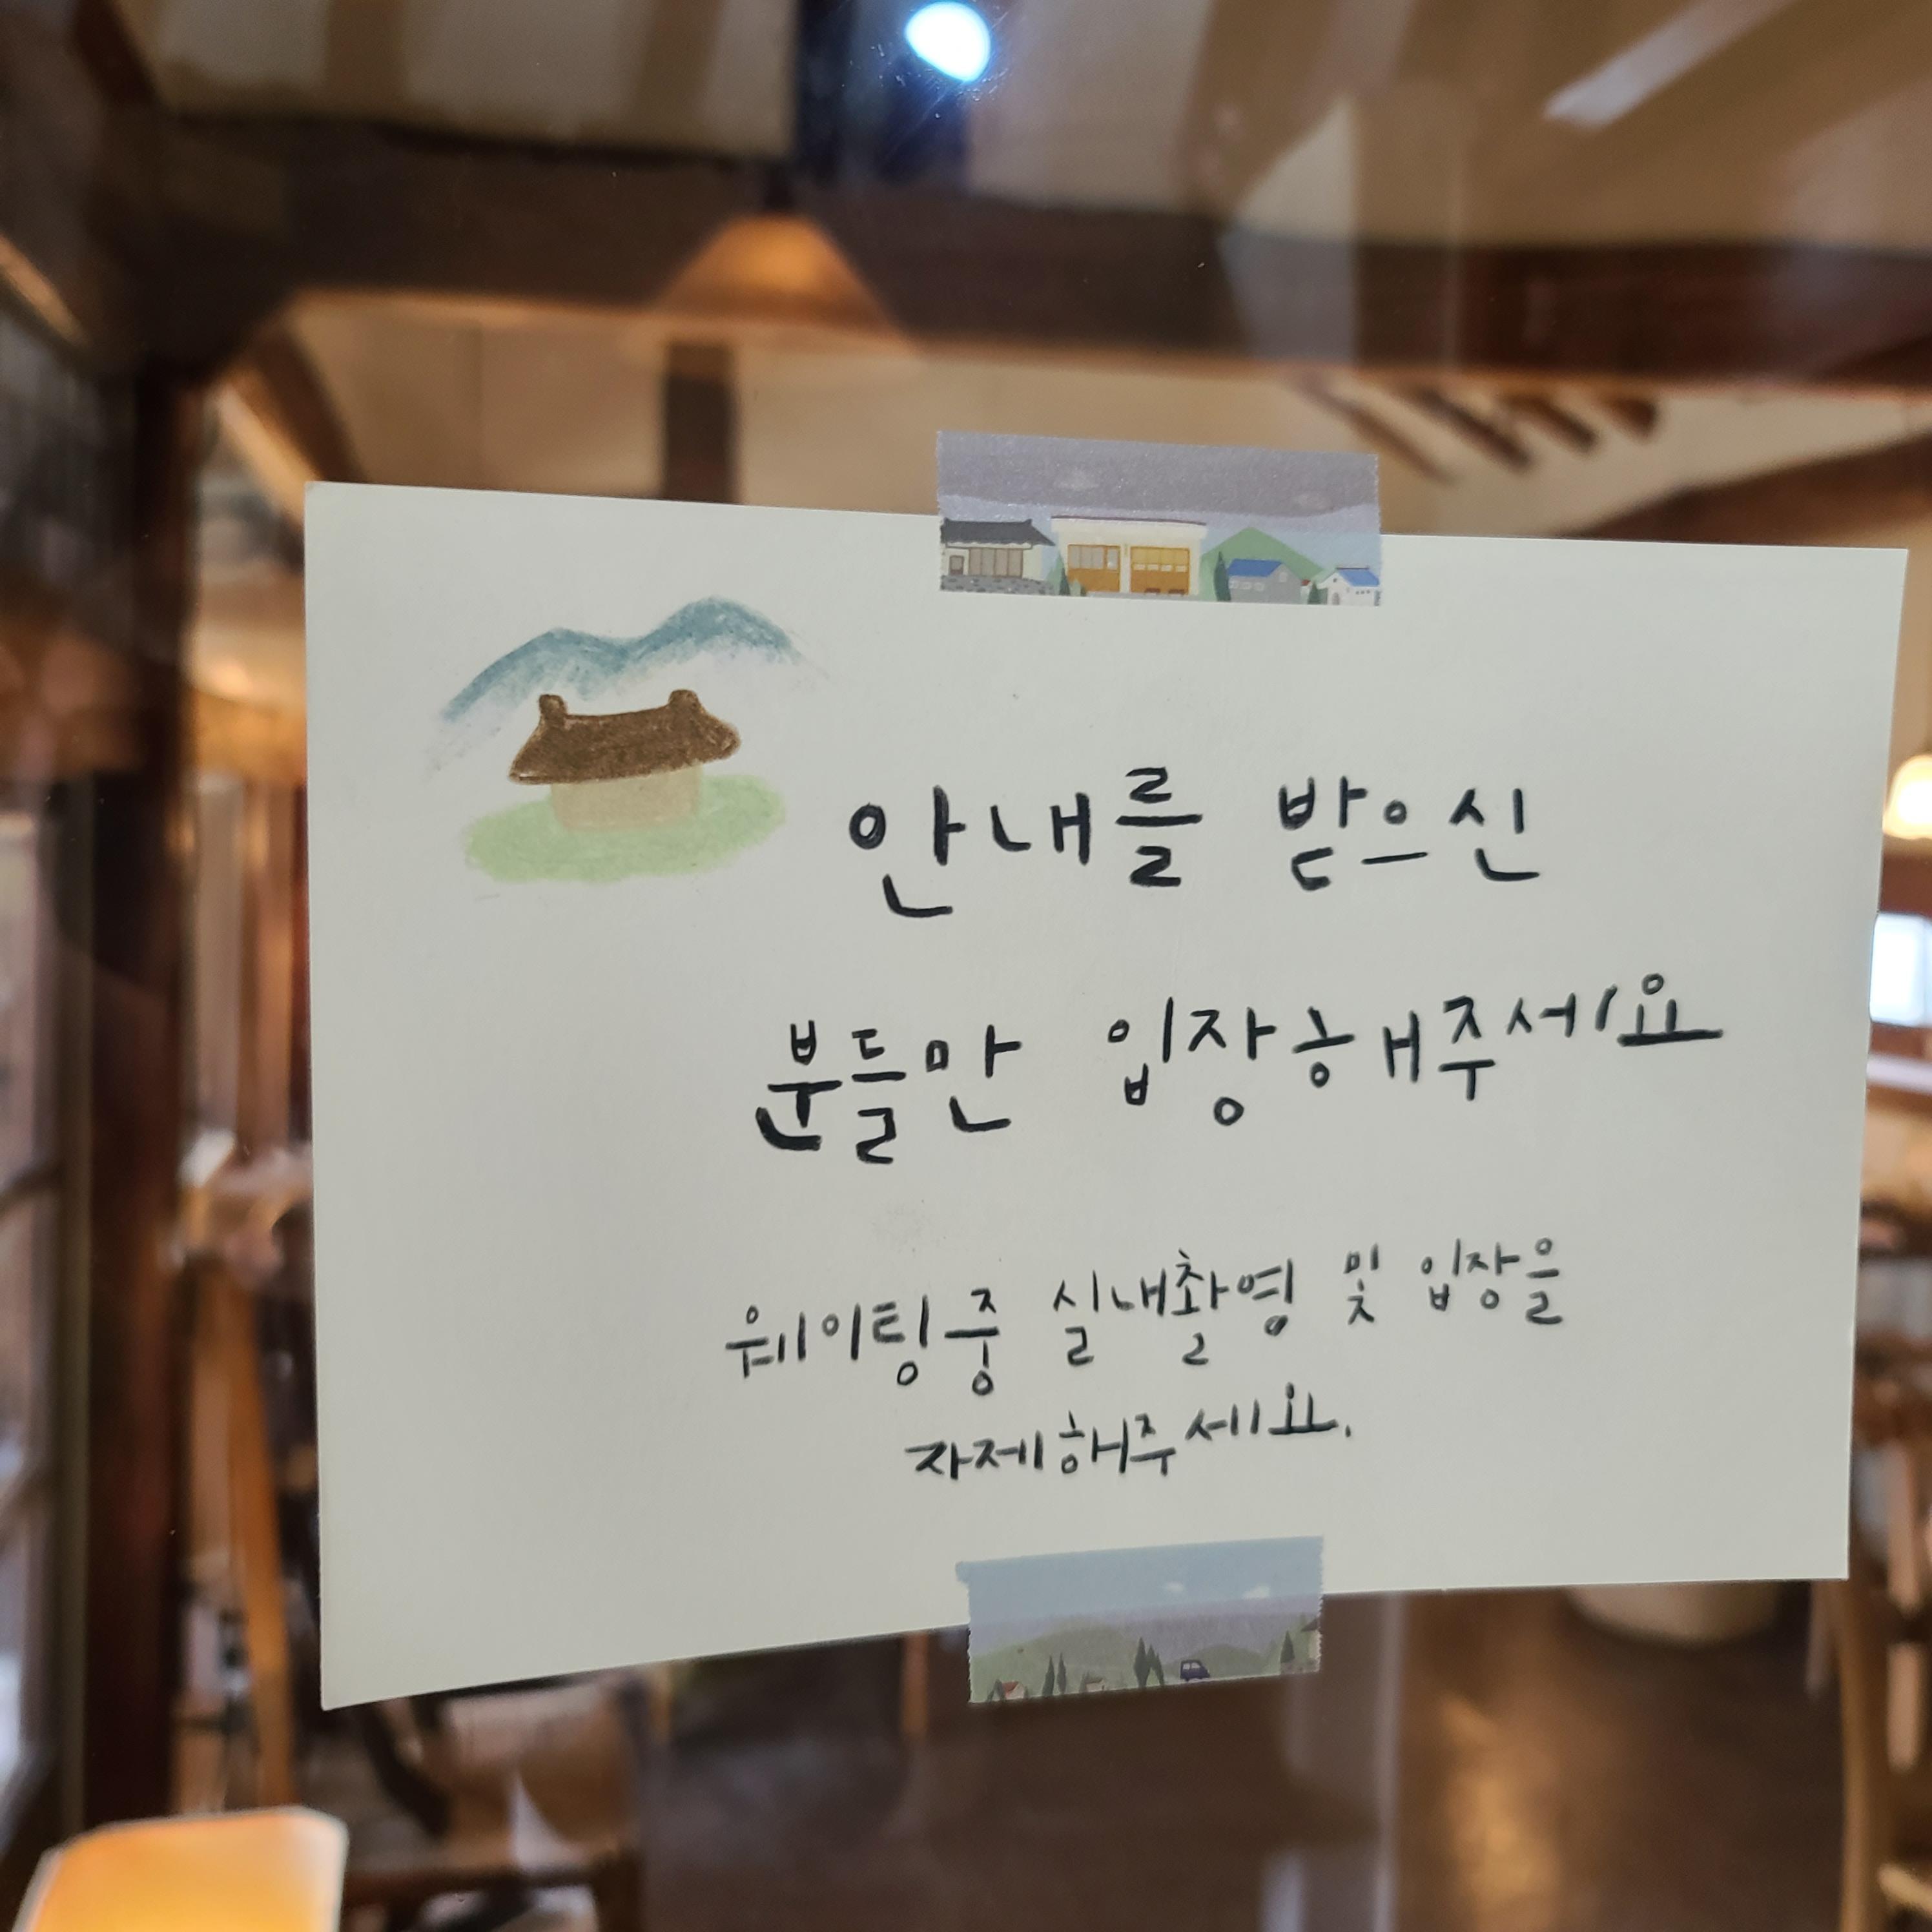 안내를 받으신
분들만 입장해주세요
웨이팅중 실내촬영 및 입장을
자제해주세요.